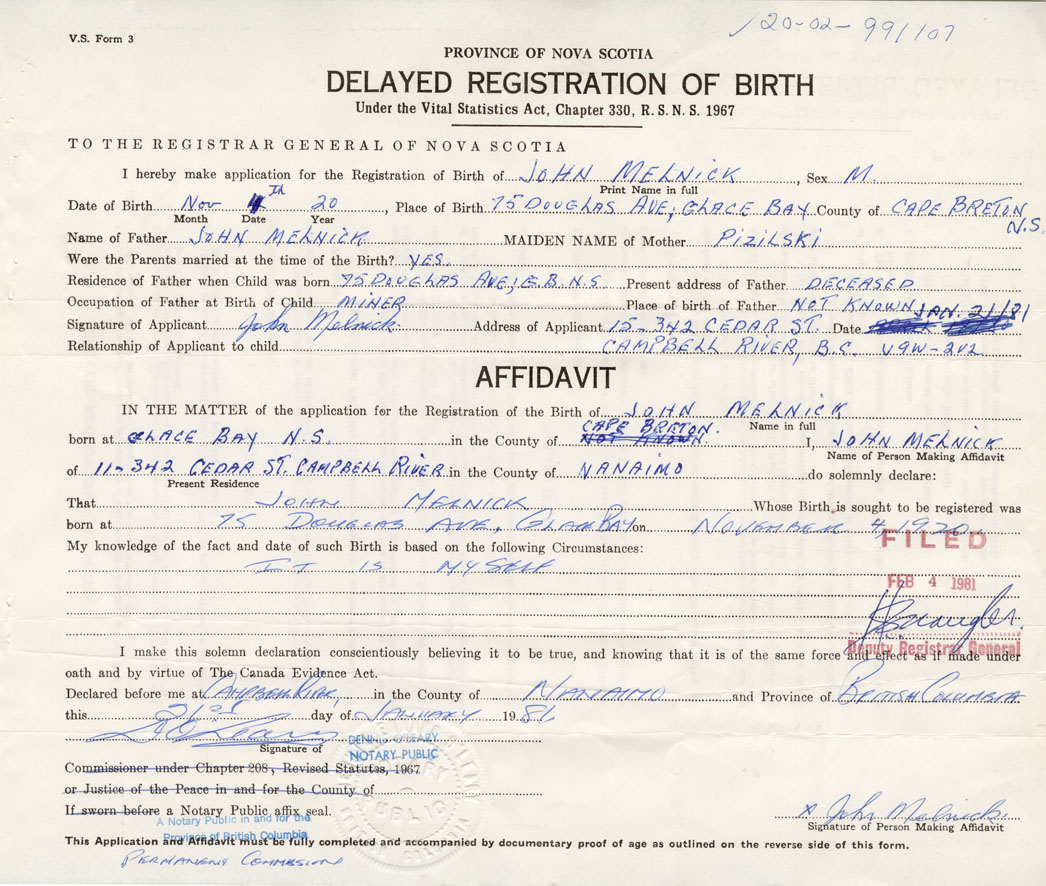 120-02-991107
V.S. Form 3
PROVINCE OF NOVA SCOTIA
DELAYED REGISTRATION OF BIRTH
Under the Vital Statistics Act, Chapter 330, R.S.N.S. 1967
TO THE REGISTRAR GENERAL OF NOVA SCOTIA
I hereby make application for the Registration of Birth of JOHN MELNICK, Sex M.
Print Name in full
Date of Birth Nov 4th 20, Place of Birth 75 DOUGLAS AVE; GLACE BAY County of CAPE BRETON N.S.
Month Date Year
Name of Father JOHN MELNICK MAIDEN NAME of Mother PIZILSKI
Were the Parents married at the time of the Birth? YES.
Residence of Father when Child was born 75 DOUGLAS AVE; G.B. N.S. Present address of Father DECEASED
Occupation of Father at Birth of Child MINER Place of birth of Father NOT KNOWN
Signature of Applicant John Melnick Address of Applicant 15-342 CEDAR ST. Date JAN. 21/81
Relationship of Applicant to child CAMPBELL RIVER, B.C. V9W-2V2
AFFIDAVIT
IN THE MATTER of the application for the Registration of the Birth of JOHN MELNICK
Name in full
born at GLACE BAY N.S. in the County of NOT KNOWN CAPE BRETON. I, JOHN MELNICK
Name of Person Making Affidavit
of 11-342 CEDAR ST. CAMPBELL RIVER in the County of NANAIMO do solemnly declare:
Present Residence
That JOHN MELNICK Whose Birth is sought to be registered was
born at 75 DOUGLAS AVE, GLACE BAY on NOVEMBER 4, 1920
My knowledge of the fact and date of such Birth is based on the following Circumstances:
IT IS MYSELF
FILED
FEB 4 1981
Deputy Registrar General
I make this solemn declaration conscientiously believing it to be true, and knowing that it is of the same force and effect as if made under
oath and by virtue of The Canada Evidence Act.
Declared before me at CAMPBELL RIVER, in the County of NANAIMO and Province of BRITISH COLUMBIA
this 21st day of JANUARY 1981
Signature of
DENNIS O'LEARY
NOTARY PUBLIC
Commissioner under Chapter 208, Revised Statutes, 1967
or Justice of the Peace in and for the County of
If sworn before a Notary Public affix seal.
A Notary Public in and for the
Province of British Columbia
x John Melnick
Signature of Person Making Affidavit
This Application and Affidavit must be fully completed and accompanied by documentary proof of age as outlined on the reverse side of this form.
PERMANENT COMMISSION